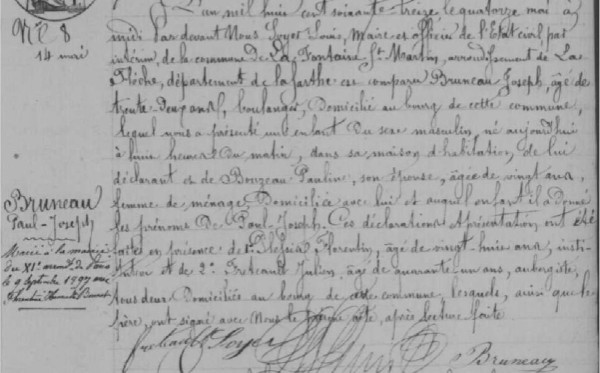 N° 8
14 mai
L'an mil huit cent soixante treize le quatorze mai à
midi par devant Nous Soyer Louis, Maire et officier de l'Etat civil par
intérim, de la commune de La Fontaine St Martin, arrondissement de La
Flèche, département de la Sarthe est comparu Bruneau Joseph, âgé de
trente deux ans, boulanger, Domicilié au bourg de cette commune,
lequel nous a présenté un enfant Du sexe masculin, né aujourd'hui
à huit heures Du matin, dans sa maison d'habitation, de lui
déclarant et de Bouzeau Pauline, son épouse, âgée de vingt ans,
femme de ménage Domiciliée avec lui et auquel enfant il a donné
les prénoms De Paul Joseph. Ces déclaration et présentation ont été
faites en présence de 1° Florentin, âgé de vingt huit ans, insti-
tuteur et de 2° Julien, âgé de quarante un ans, aubergiste,
tous deux Domiciliés au bourg de cette commune, lesquels, ainsi que le
père, ont signé avec Nous le présent acte, après lecture faite
Bruneau
Paul-Joseph
Marié à la mairie
du XIe arrondt de Paris
le 9 Septembre 1897 avec
Soyer
Bruneau